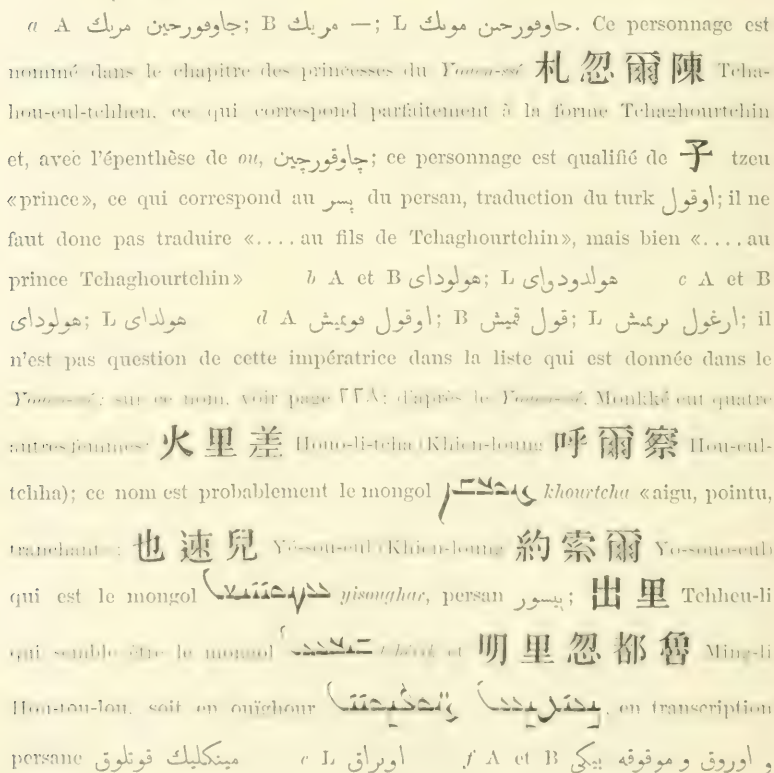 a A جاوقورحین مربك; B — مربك; L حاوفورحىں موىك. Ce personnage est
nommé dans le chapitre des princesses du Youen-ssé 札忽爾陳 Tcha-
hou-eul-tchhen, ce qui correspond parfaitement à la forme Tchaghourtchin
et, avec l'épenthèse de ou, جاوقورچین; ce personnage est qualifié de 子 tzeu
«prince», ce qui correspond au پسر du persan, traduction du turk اوقول; il ne
faut donc pas traduire «.... au fils de Tchaghourtchin», mais bien «.... au
prince Tchaghourtchin» b A et B هولودای; L هولدودوای c A et B
هولودای; L هولدای d A اوقول فوىمیش; B قول قمیش; L ارغول ىرىمىش; il
n'est pas question de cette impératrice dans la liste qui est donnée dans le
Youen-ssé; sur ce nom, voir page ٢٢٨; d'après le Youen-ssé, Monkké eut quatre
autres femmes: 火里差 Houo-li-tcha (Khien-loung 呼爾察 Hou-eul-
tchha); ce nom est probablement le mongol khourtcha «aigu, pointu,
tranchant»; 也速兒 Yé-sou-eul (Khien-loung 約索爾 Yo-souo-eul)
qui est le mongol yisoughar, persan ییسور; 出里 Tchheu-li
qui semble être le mongol et 明里忽都魯 Ming-li
Hou-tou-lou, soit en ouïghour , en transcription
persane مینکلیك قوتلوق e L اوىراق f A et B و اوروق و موقوقه بیکی